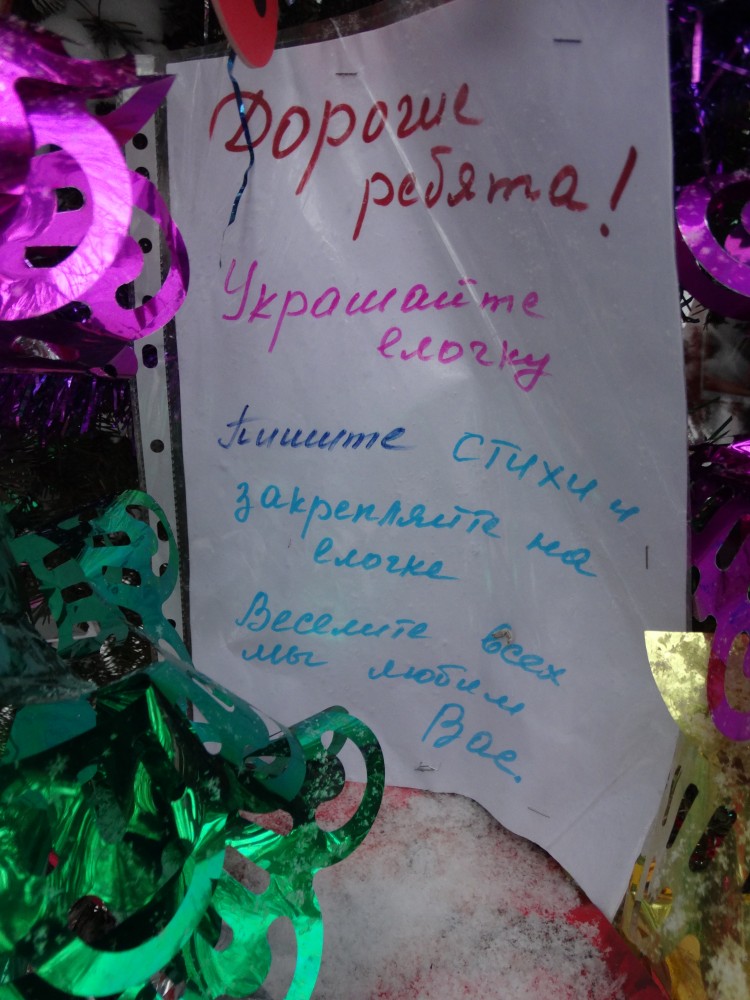 Дорогие
ребята!
Украшайте
елочку
Пишите стихи и
закрепляйте на
елочке
Веселите всех
мы любим
Вас.